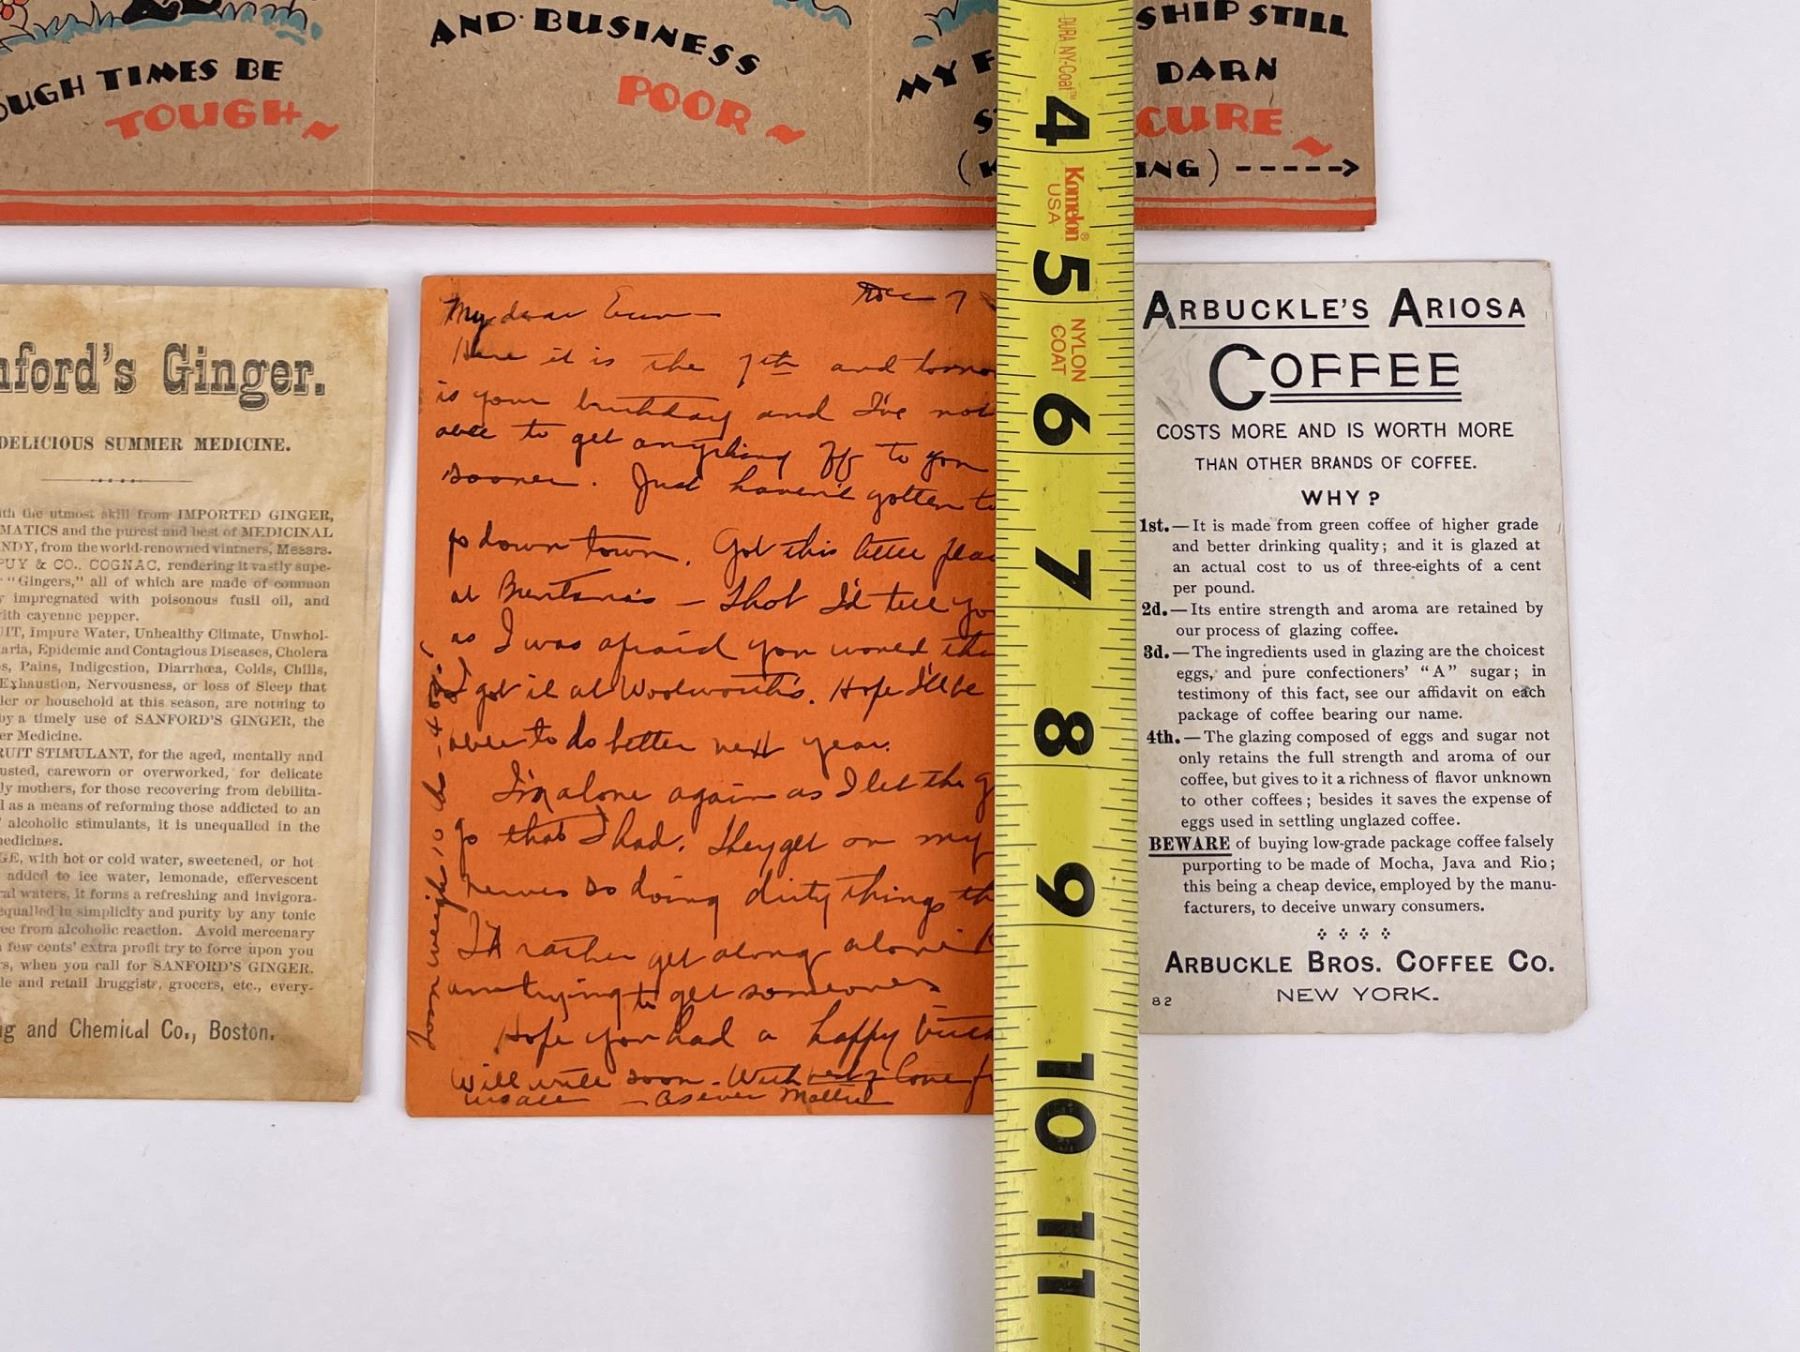 OUGH TIMES BE
TOUGH~
AND BUSINESS
POOR ~
SHIP STILL
MY F
DARN
S
CURE ~
(K
ING) ----->
DURA NY-Coat™
4
Komelon®
USA
5
NYLON
COAT
6
7
8
9
10
11
nford's Ginger.
DELICIOUS SUMMER MEDICINE.
ith the utmost skill from IMPORTED GINGER,
MATICS and the purest and best of MEDICINAL
NDY, from the world-renowned vintners, Messrs.
PUY & CO., COGNAC, rendering it vastly supe-
"Gingers," all of which are made of common
y impregnated with poisonous fusil oil, and
with cayenne pepper.
UIT, Impure Water, Unhealthy Climate, Unwhol-
aria, Epidemic and Contagious Diseases, Cholera
s, Pains, Indigestion, Diarrhœa, Colds, Chills,
Exhaustion, Nervousness, or loss of Sleep that
ler or household at this season, are nothing to
by a timely use of SANFORD'S GINGER, the
er Medicine.
RUIT STIMULANT, for the aged, mentally and
usted, careworn or overworked, for delicate
ly mothers, for those recovering from debilita-
l as a means of reforming those addicted to an
alcoholic stimulants, it is unequalled in the
medicines.
GE, with hot or cold water, sweetened, or hot
added to ice water, lemonade, effervescent
ral waters, it forms a refreshing and invigora-
equalled in simplicity and purity by any tonic
ee from alcoholic reaction. Avoid mercenary
a few cents' extra profit try to force upon you
rs, when you call for SANFORD'S GINGER.
le and retail druggists, grocers, etc., every-
ug and Chemical Co., Boston.
My dear
7
Here it is the 7th and tomo
is your birthday and I've not
able to get anything off to you
sooner. Just haven't gotten to
go down town. Got this little
at - Thot I'd tell yo
as I was afraid you would thi
I got it at Woolworth's. Hope I'll be
able to do better next year.
I'm alone again as I let the g
go that I had. They get on my
nerves so doing dirty things th
I'd rather get along alone. B
am trying to get someone.
Hope you had a happy birth
Will write soon. With love f
us all - As ever Mattie
Tom weighs 10 lbs
ARBUCKLE'S ARIOSA
COFFEE
COSTS MORE AND IS WORTH MORE
THAN OTHER BRANDS OF COFFEE.
WHY?
1st.—It is made from green coffee of higher grade
and better drinking quality; and it is glazed at
an actual cost to us of three-eights of a cent
per pound.
2d.—Its entire strength and aroma are retained by
our process of glazing coffee.
3d.—The ingredients used in glazing are the choicest
eggs, and pure confectioners' "A" sugar; in
testimony of this fact, see our affidavit on each
package of coffee bearing our name.
4th.—The glazing composed of eggs and sugar not
only retains the full strength and aroma of our
coffee, but gives to it a richness of flavor unknown
to other coffees; besides it saves the expense of
eggs used in settling unglazed coffee.
BEWARE of buying low-grade package coffee falsely
purporting to be made of Mocha, Java and Rio;
this being a cheap device, employed by the manu-
facturers, to deceive unwary consumers.
ARBUCKLE BROS. COFFEE CO.
82
NEW YORK.